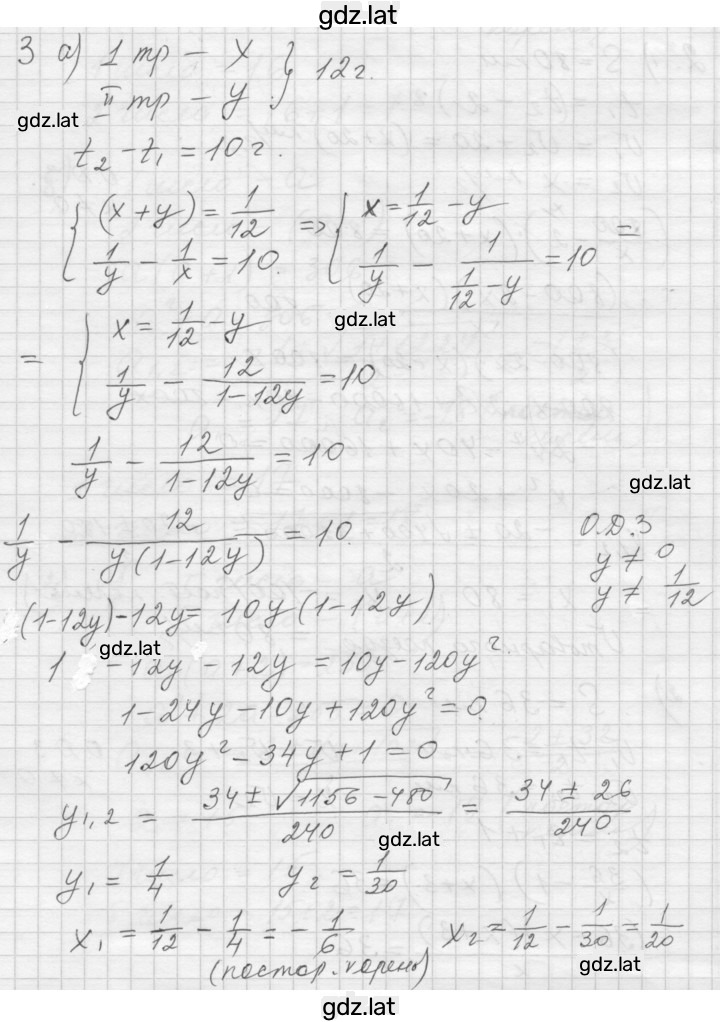 gdz.lat
3 а) I тр – x } 12 г.
II тр – y
gdz.lat
t₂ – t₁ = 10 г.
{ (x + y) = 1/12 => { x = 1/12 – y
1/y – 1/x = 10. 1/y – 1/(1/12 – y) = 10 =
gdz.lat
= { x = 1/12 – y
1/y – 12/(1–12y) = 10
1/y – 12/(1–12y) = 10
gdz.lat
1/y – 12/(y(1–12y)) = 10. О.Д.З
y ≠ 0
y ≠ 1/12
(1–12y)–12y = 10y(1–12y)
gdz.lat
1 –12y – 12y = 10y – 120y²
1–24y –10y + 120y² = 0
120y² – 34y + 1 = 0
y₁,₂ = (34 ± √(1156 – 480))/240 = (34 ± 26)/240
gdz.lat
y₁ = 1/4 y₂ = 1/30
x₁ = 1/12 – 1/4 = – 1/6 x₂ = 1/12 – 1/30 = 1/20
(постор. корень)
gdz.lat
gdz.lat